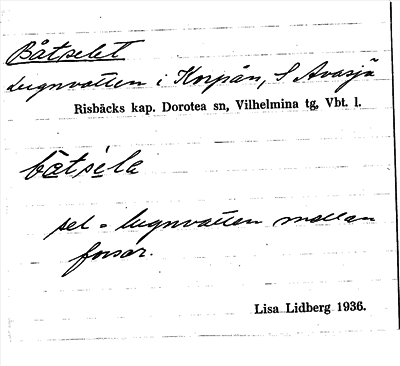 Båtselet
Lugnvatten i Korpån, S Avasjö
Risbäcks kap. Dorotea sn, Vilhelmina tg, Vbt. l.
bᾱtsela
sel = lugnvatten mellan
forsar.
Lisa Lidberg 1936.